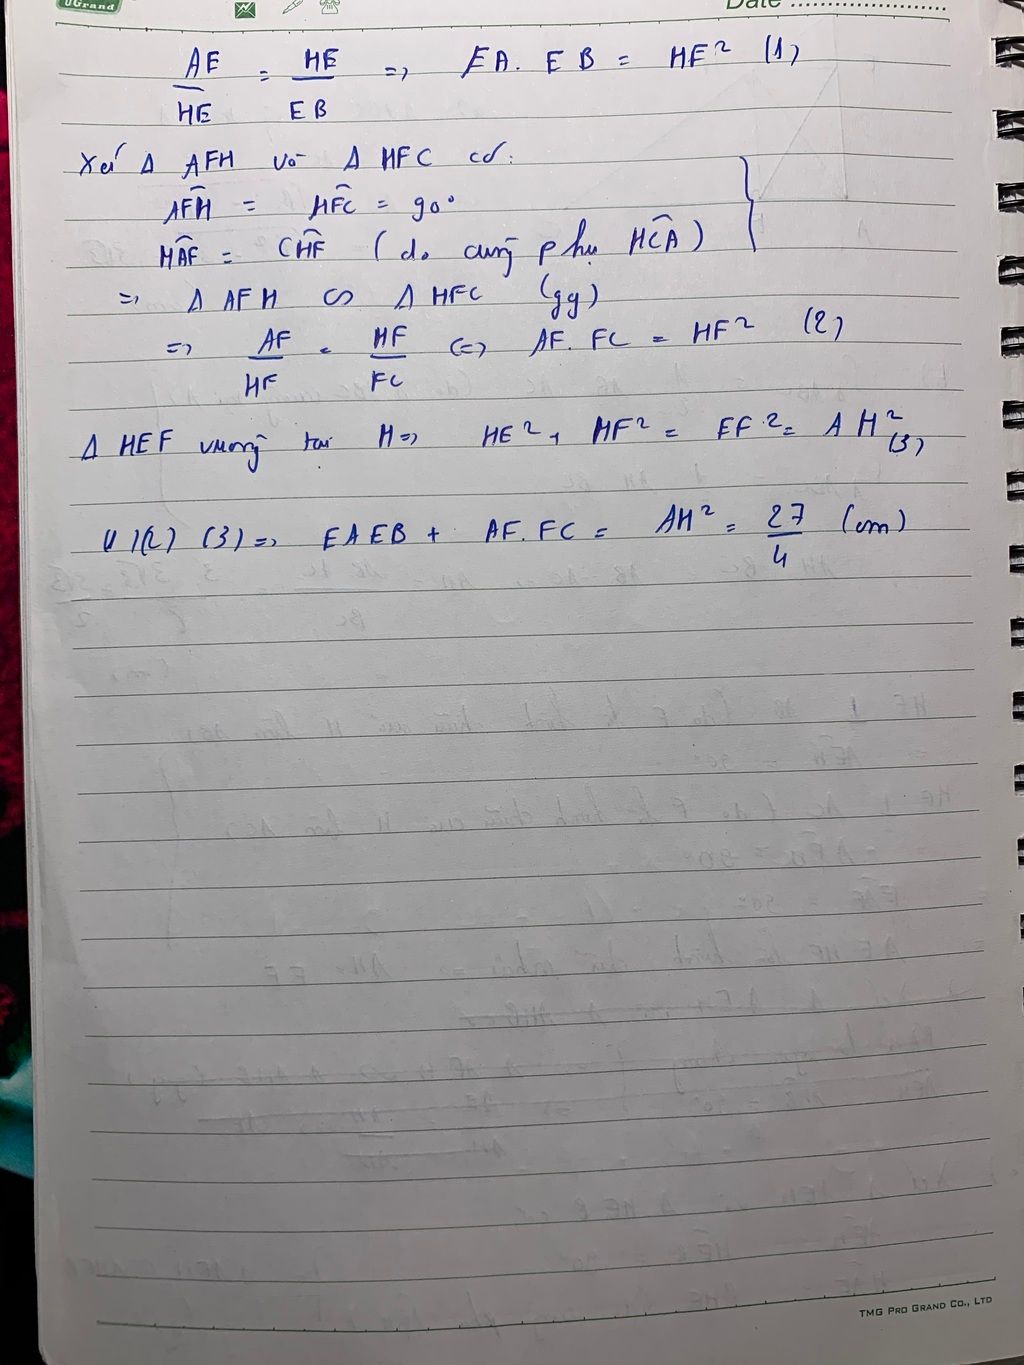 UGrand
Date
AE/HE = HE/EB => EA. EB = HE² (1)
Xét Δ AFH và Δ HFC có:
AFH = HFC = 90°
HAF = CHF (do cùng phụ HCA)
=> Δ AFH ∽ Δ HFC (gg)
=> AF/HF = HF/FC <=> AF. FC = HF² (2)
Δ HEF vuông tại H => HE² + HF² = EF² = AH² (3)
(1)(2) (3) => EA EB + AF. FC = AH² = 27/4 (cm)
TMG PRO GRAND CO., LTD